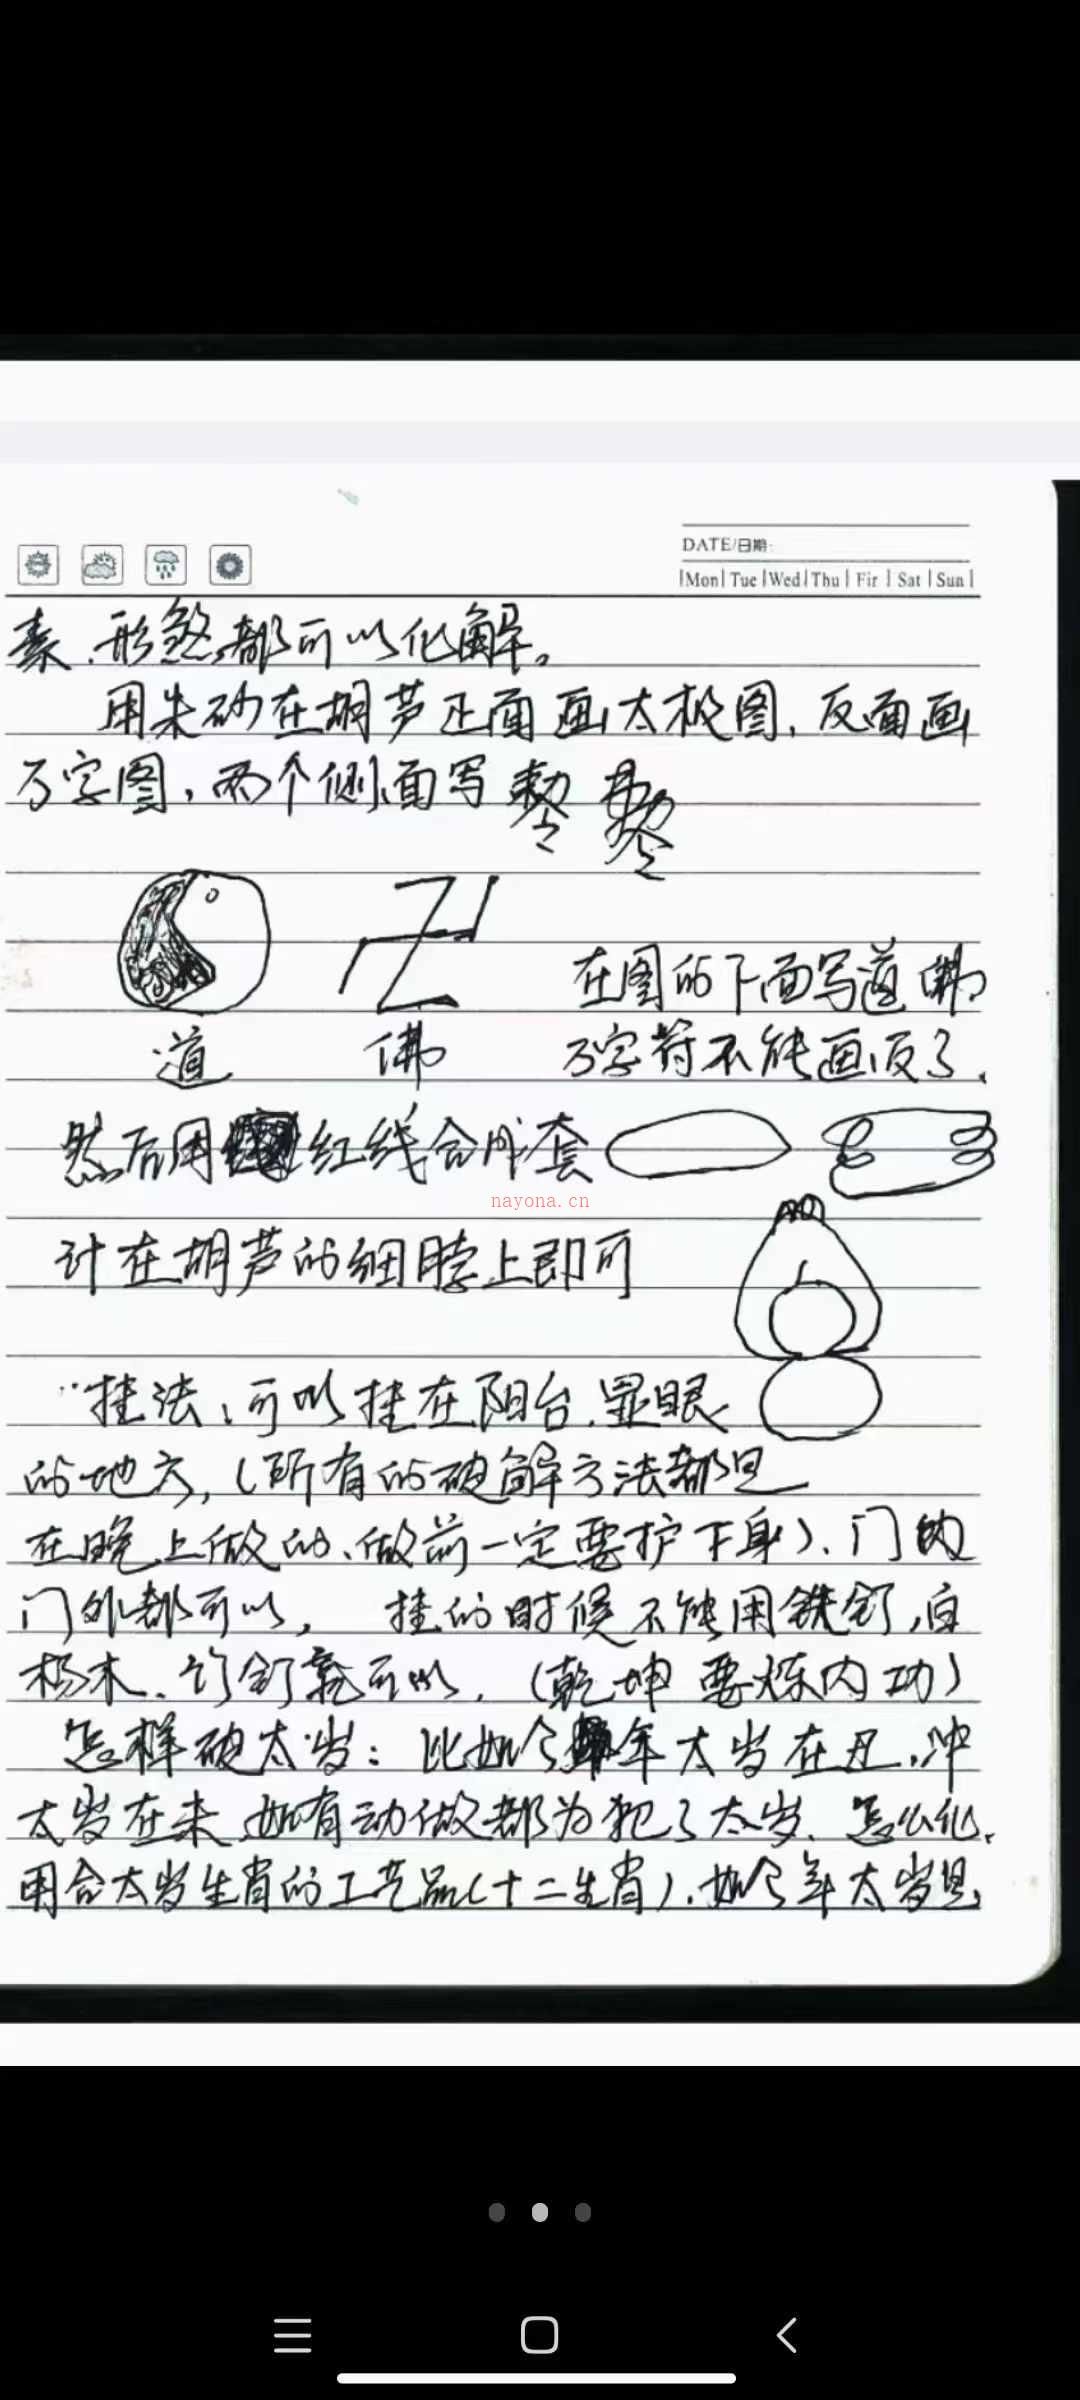 DATE/日期:
Mon Tue Wed Thu Fir Sat Sun
素、形煞都可以化解。
用朱砂在胡芦正面画太极图,反面画
万字图,两个侧面写
卍
在图的下面写道 佛
道 佛 万字符不能画反了.
然后用红线合成套
nayona.cn
计在胡芦的细脖上即可
挂法:可以挂在阳台.显眼
的地方,(所有的破解方法都是
在晚上做的、做前一定要护下身)、门内
门外都可以, 挂的时候不能用铁钉,白
杨木、竹钉就可以.(乾坤要炼内功)
怎样破太岁:比如今年太岁在丑.冲
太岁在未.如有动做都为犯了太岁、怎么化.
用合太岁生肖的工艺品(十二生肖).如今年太岁是